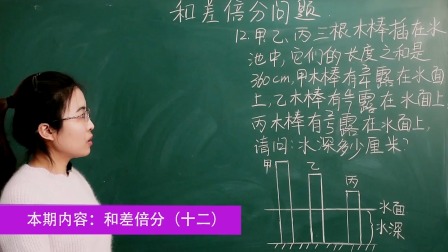 和差倍分问题
12.甲、乙、丙三根木棒插在水
池中,它们的长度之和是
360cm,甲木棒有3/4露在水面
上,乙木棒有4/7露在水面上
丙木棒有2/5露在水面上,
请问:水深多少厘米?
甲
乙
丙
水面
水深
本期内容：和差倍分（十二）